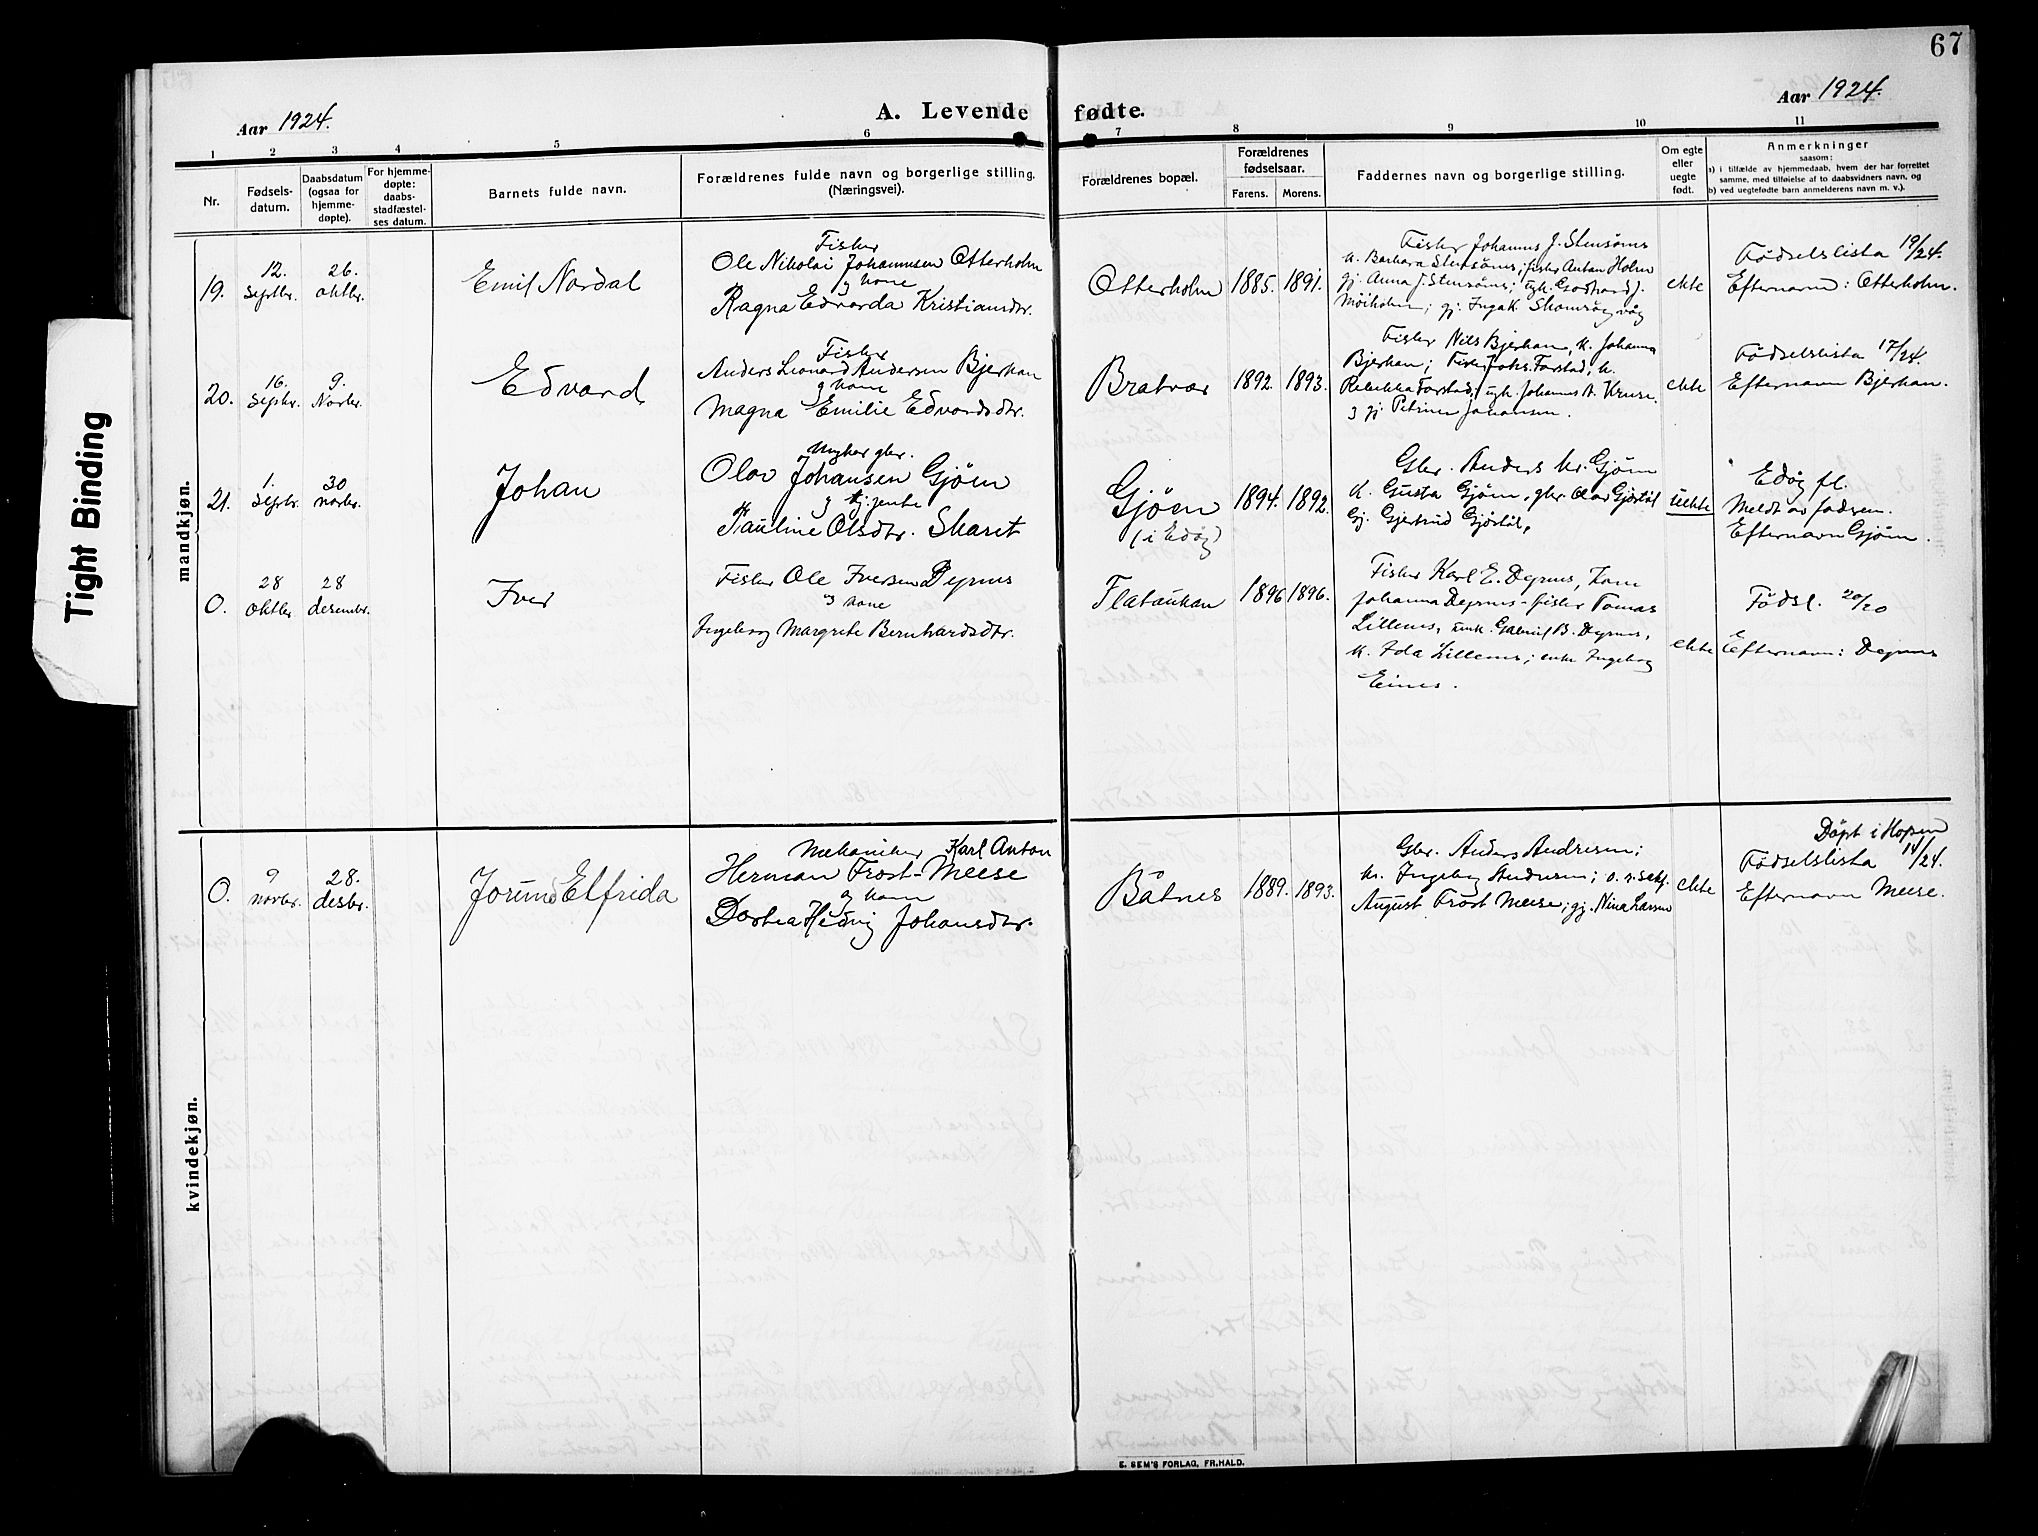 67
Aar 1924.
A. Levende fødte.
Aar 1924.
1 2 3 4 5 6 7 8 9 10 11
Nr.
Fødsels-
datum.
Daabsdatum
(ogsaa for
hjemme-
døpte).
For hjemme-
døpte:
daabs-
stadfæstel-
ses datum.
Barnets fulde navn.
Forældrenes fulde navn og borgerlige stilling.
(Næringsvei).
Forældrenes bopæl.
Forældrenes
fødselsaar.
Farens. Morens.
Faddernes navn og borgerlige stilling.
Om egte
eller
uegte
født.
Anmerkninger
saasom:
a) i tilfælde av hjemmedaab, hvem der har forrettet
samme, med tilføielse af to daabsvidners navn, og
b) ved uegtefødte barn anmelderens navn m. v.).
mandkjøn.
19.
12.
Septbr.
26.
oktbr.
Emil Nordal
Fisker
Ole Nikolai Johannesen Otterholm
og kone
Ragna Edvarda Kristiansdtr.
Otterholm
1885. 1891.
Fisker Johannes J. Stensønes
k. Barbara Stensønes; fisker Anton Holm
gj. Anna J. Stensønes; ugk. Godhard J.
Møiholm; gj. Inga K.
ekte
Fødselslista 19/24.
Efternavn: Otterholm.
20.
16.
Septbr.
9.
Novbr.
Edvard
Fisker
Anders Leonard Andersen Bjerkan
og kone
Magna Emilie Edvardsdtr.
Bratvær
1892. 1893.
Fisker Nils Bjerkan, k. Johanna
Bjerkan; Fisker Johs. Forstad, k.
Rebekka Forstad, ugk. Johannes A. Kruse.
3 gj. Petrine Johansen.
ekte
Fødselslista 17/24.
Efternavn Bjerkan.
21.
1.
Septbr.
30
novbr.
Johan
Ungkar gbr.
Olav Johansen Gjøen
og tj. jente
Pauline Olsdtr. Skaret
Gjøen
(i Edøy)
1894. 1892.
Gbr. Anders Kr. Gjøen
k. Gusta Gjøen, gbr. Olav Gjøstøl
Gj. Gjertrud Gjøstøl,
uekte
Edøy fl.
Meldt av fadren.
Efternavn Gjøen.
0.
28
oktbr.
28
desembr.
Iver
Fisker Ole Iversen Dyrnes
og kone
Ingeborg Margrete Bernhardsdtr.
Flataukan
1896 1896.
Fisker Karl E. Dyrnes, kone
Johanna Dyrnes - fisker Tomas
Lillenes, unk. Gabriel B. Dyrnes,
k. Ida Lillenes; enke Ingeborg
Eines.
ekte
Fødsl. 20/20
Efternavn: Dyrnes
kvindekjøn.
0.
9
novbr.
28.
desbr.
Jorund Elfrida
Mekaniker Karl Anton
Herman Frost-Meese
og kone
Dortea Hedvig Johansdtr.
Båtnes
1889. 1893.
Gbr. Anders Andresen;
k. Ingeborg Andresen; o.r.sakf.
August Frost Meese; gj. Nina Larsen
ekte
Døpt i Hopen
Fødselslista 14/24.
Efternavn Meese.
E. SEM'S FORLAG, FR.HALD.
Tight Binding